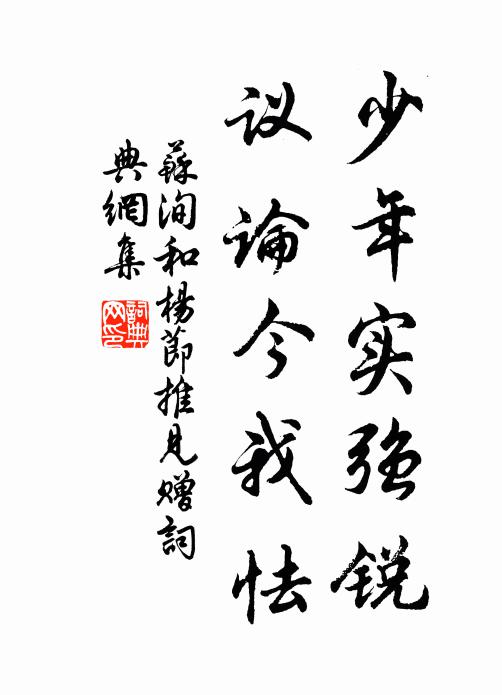 少年实强锐
议论今我怯
蘇洵和楊節推見赠詞
典網集
詞典
网印